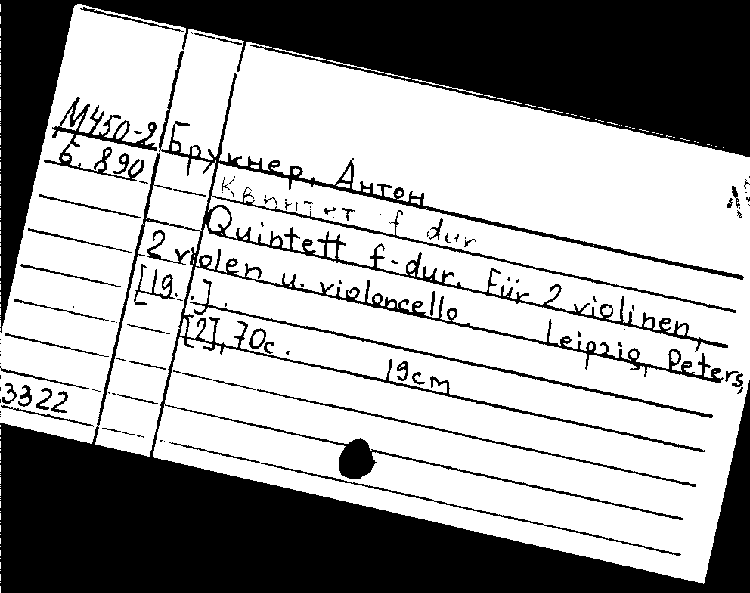 М450-2 Брукнер, Антон
Б. 890
Квинтет f dur
Quintett f-dur. Für 2 violinen,
2 violen u. violoncello. Leipzig, Peters,
[19..].
[2], 70c. 19cm
3322